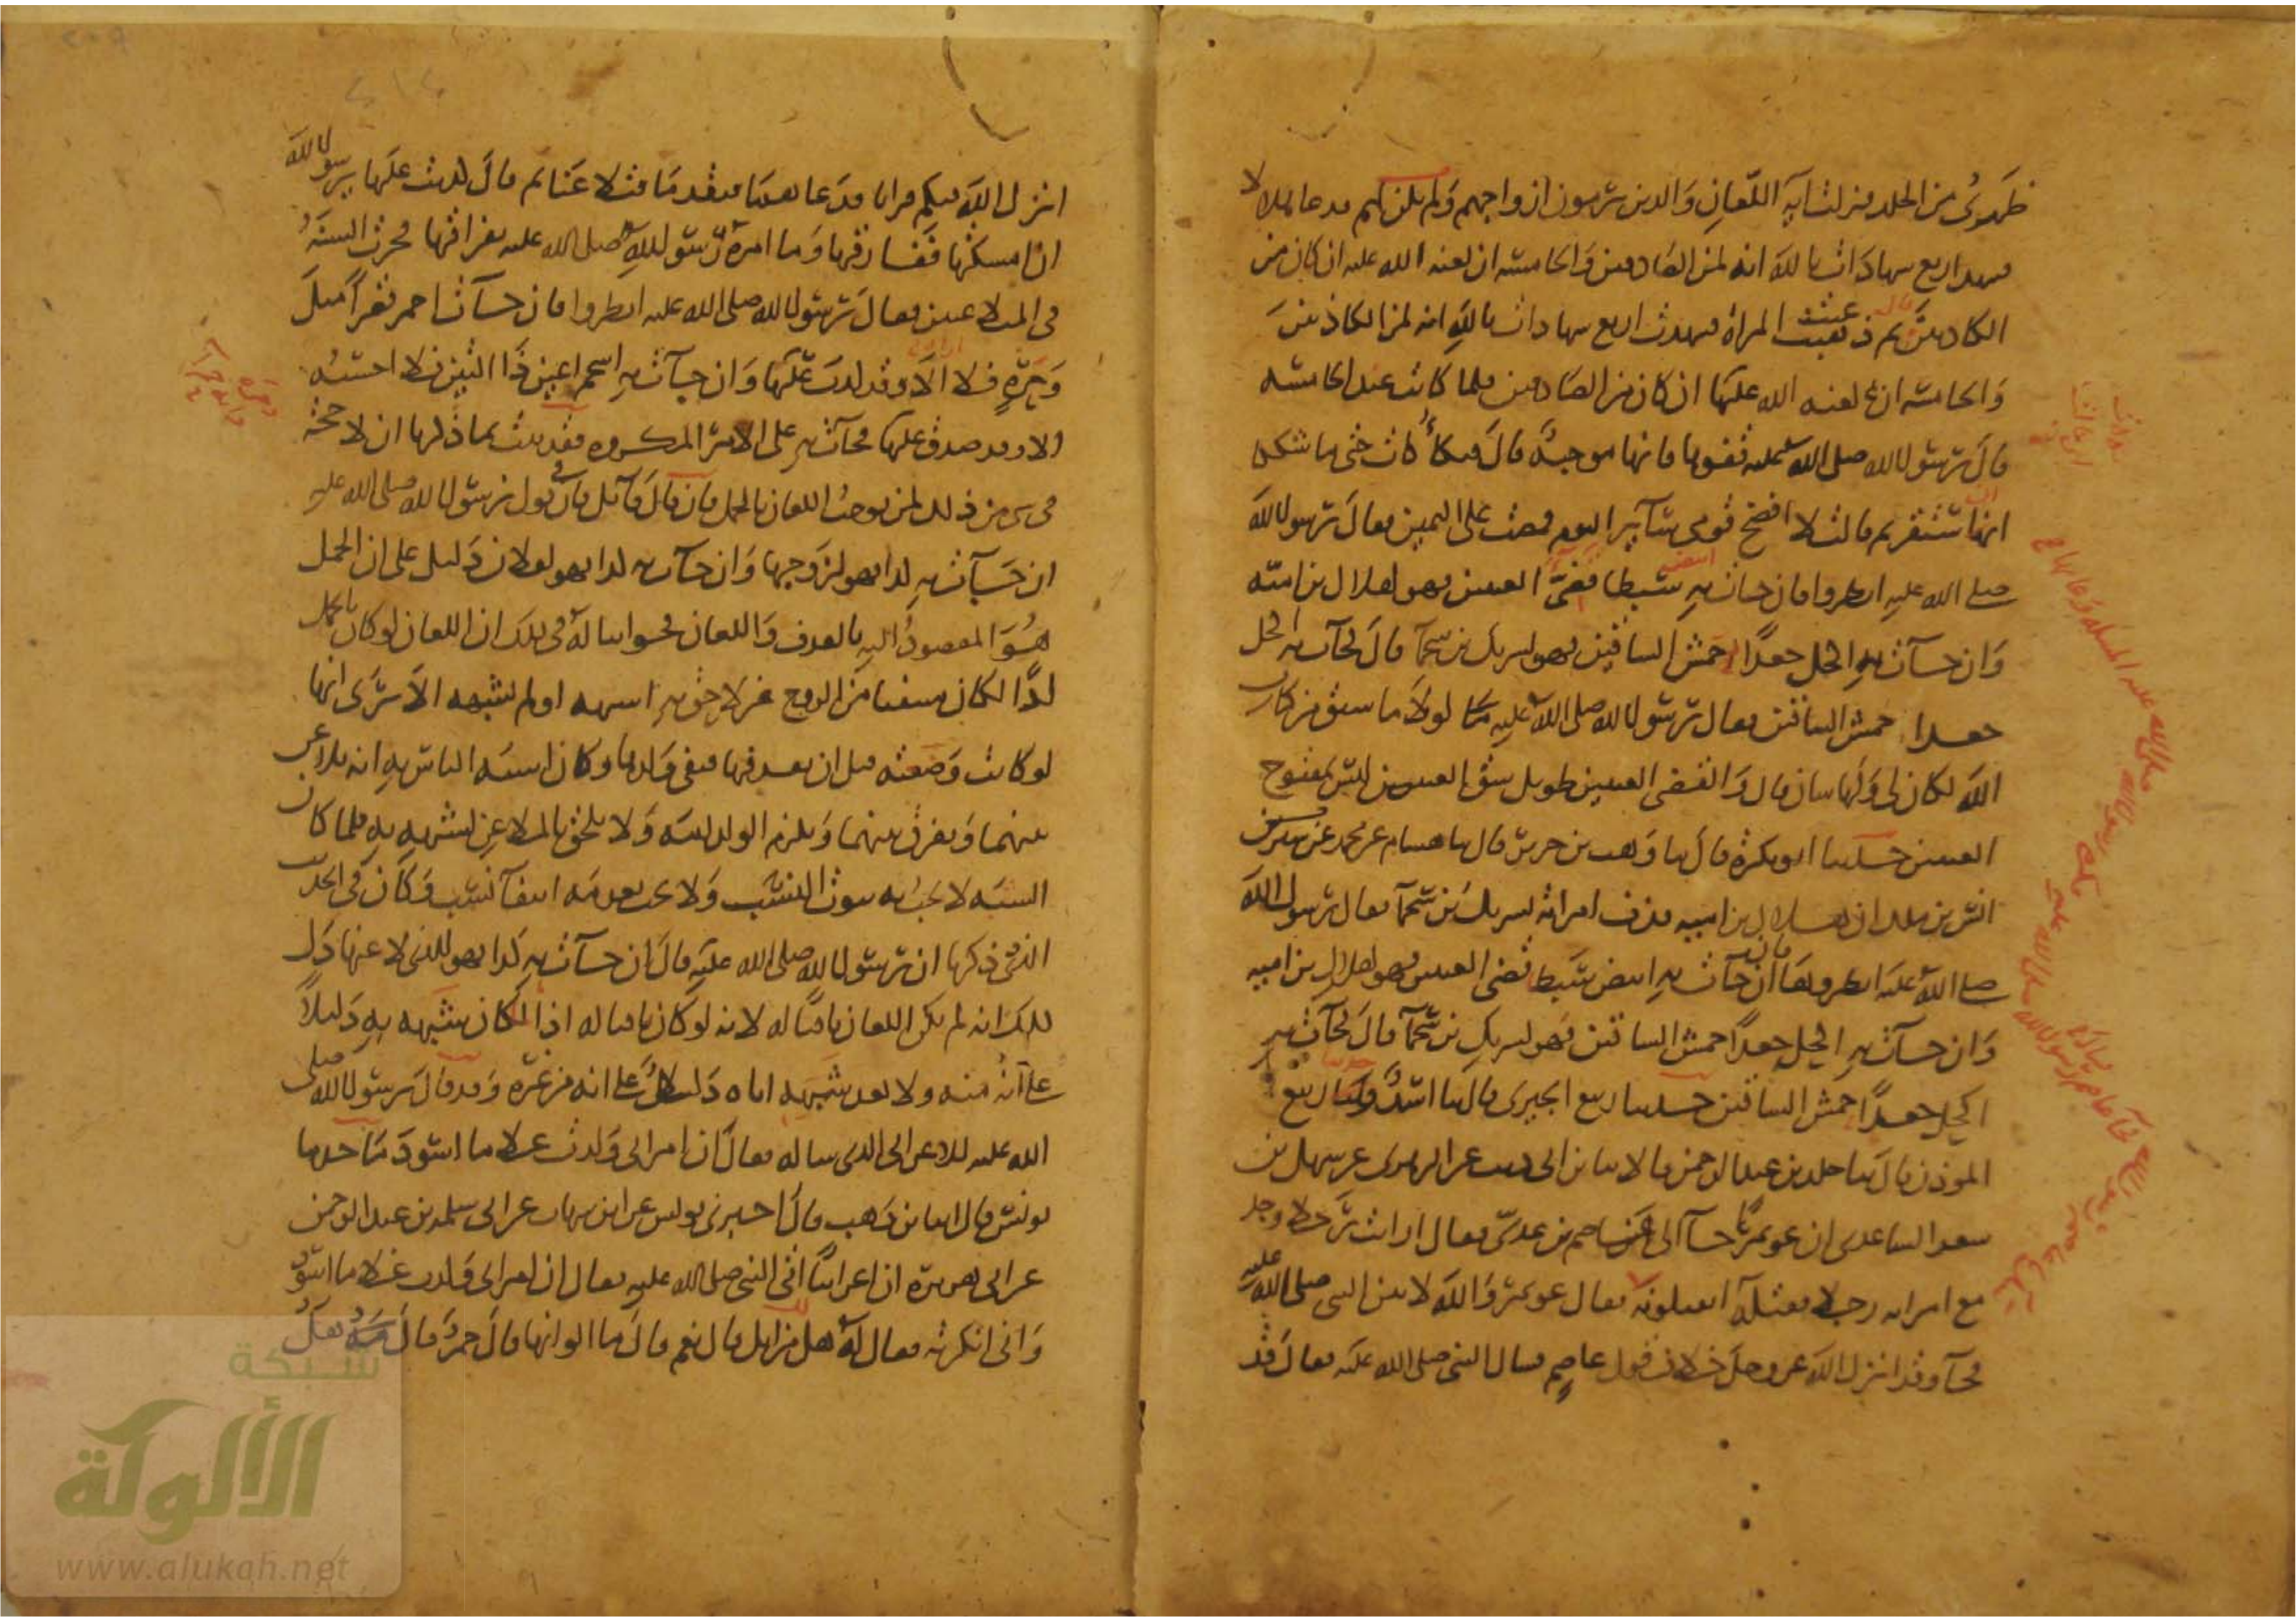 ظهري من الجلد فنزلت آية اللعان والذين يرمون أزواجهم ولم يكن لهم فدعا هلالا
فشهد أربع شهادات بالله إنه لمن الصادقين والخامسة أن لعنة الله عليه إن كان من
الكاذبين قال ثم دعيت المرأة فشهدت أربع شهادات بالله إنه لمن الكاذبين
والخامسة أن لعنة الله عليها إن كان من الصادقين فلما كانت عند الخامسة
قال رسول الله صلى الله عليه قفوها فإنها موجبة قال فتلكأت حتى ما شككنا
أنها ستقر ثم قالت لا أفضح قومي سائر اليوم فمضت على اليمين فقال رسول الله
صلى الله عليه انظروا فإن جاءت به أبيض سبطا قضيء العينين فهو لهلال بن أمية
وإن جاءت به أكحل جعدا حمش الساقين فهو لشريك بن سحماء قال فجاءت به أكحل
جعدا حمش الساقين فقال رسول الله صلى الله عليه لولا ما سبق من كتاب
الله لكان لي ولها شأن قال والقضيء العينين طويل شق العينين ليس بمفتوح
العينين حدثنا أبو بكرة قال ثنا وهب بن جرير قال ثنا هشام عن محمد بن سيرين
أنس بن ملك أن هلال بن أمية قذف امرأته بشريك بن سحماء فقال رسول الله
صلى الله عليه انظروها فإن جاءت به أبيض سبط قضيء العينين فهو لهلال بن أمية
وإن جاءت به أكحل جعدا حمش الساقين فهو لشريك بن سحماء قال فجاءت به
أكحل جعدا حمش الساقين حدثنا ربيع الجيزي قال ثنا أسد وثنا ربيع
المؤذن قال ثنا خلد بن عبد الرحمن قالا ثنا ابن أبي ذئب عن الزهري عن سهل بن
سعد الساعدي أن عويمرا جاء إلى عاصم بن عدي فقال أرأيت رجلا وجد
مع امرأته رجلا فقتله أتقتلونه فقال عويمر والله لآتين النبي صلى الله عليه
فجاء وقد أنزل الله عز وجل خلاف قول عاصم فسأل النبي صلى الله عليه فقال قد
أنزل الله فيكم قرآنا فدعا بهما فتقدما فتلاعنا ثم قال كذبت عليها يرسول الله
إن أمسكتها ففارقها وما أمره رسول الله صلى الله عليه بفراقها فجرت السنة
في المتلاعنين فقال رسول الله صلى الله عليه انظروا فإن جاءت أحمر قصيرا مثل
وحرة فلا أراه إلا وقد كذب عليها وإن جاءت به أسحم أعين ذا أليتين فلا أحسبه
إلا وقد صدق عليها فجاءت به على الأمر المكروه فقد ثبت بما ذكرنا أن لا حجة
في شيء من ذلك لمن يوجب اللعان بالحمل فإن قال قائل فإن في قول رسول الله صلى الله عليه
إن جاءت به كذا فهو لزوجها وإن جاءت به كذا فهو لفلان دليل على أن الحمل
هو المقصود إليه بالقذف واللعان فجوابنا له في ذلك أن اللعان لو كان بالحمل
إذا لكان منتفيا من الزوج غير لاحق به أشبهه أو لم يشبهه ألا ترى أنها
لو كانت وضعته قبل أن يقذفها فنفى ولدها وكان أشبه الناس به أنه يلاعن
بينهما ويفرق بينهما ويلزم الولد أمه ولا يلحق بالملاعن لشبهه به فلما كان
الشبه لا يجب به ثبوت النسب ولا يجب بعدمه انتفاء نسب وكان في الحديث
الذي ذكرنا أن رسول الله صلى الله عليه قال إن جاءت به كذا فهو للذي لاعنها دل
ذلك أنه لم يكن اللعان نافيا له لأنه لو كان نافيا له إذا لما كان شبهه به دليلا
على أنه منه ولا بعد شبهه إياه دليلا على أنه من غيره وقد قال رسول الله صلى
الله عليه للأعرابي الذي سأله فقال إن امرأتي ولدت غلاما أسود ما حدثنا
يونس قال أنا ابن وهب قال أخبرني يونس عن ابن شهاب عن أبي سلمة بن عبد الرحمن
عن أبي هريرة أن أعرابيا أتى النبي صلى الله عليه فقال إن امرأتي ولدت غلاما أسود
وإني أنكرته فقال له هل لك من إبل قال نعم قال ما ألوانها قال حمر قال هل
شبكة
الألوكة
www.alukah.net